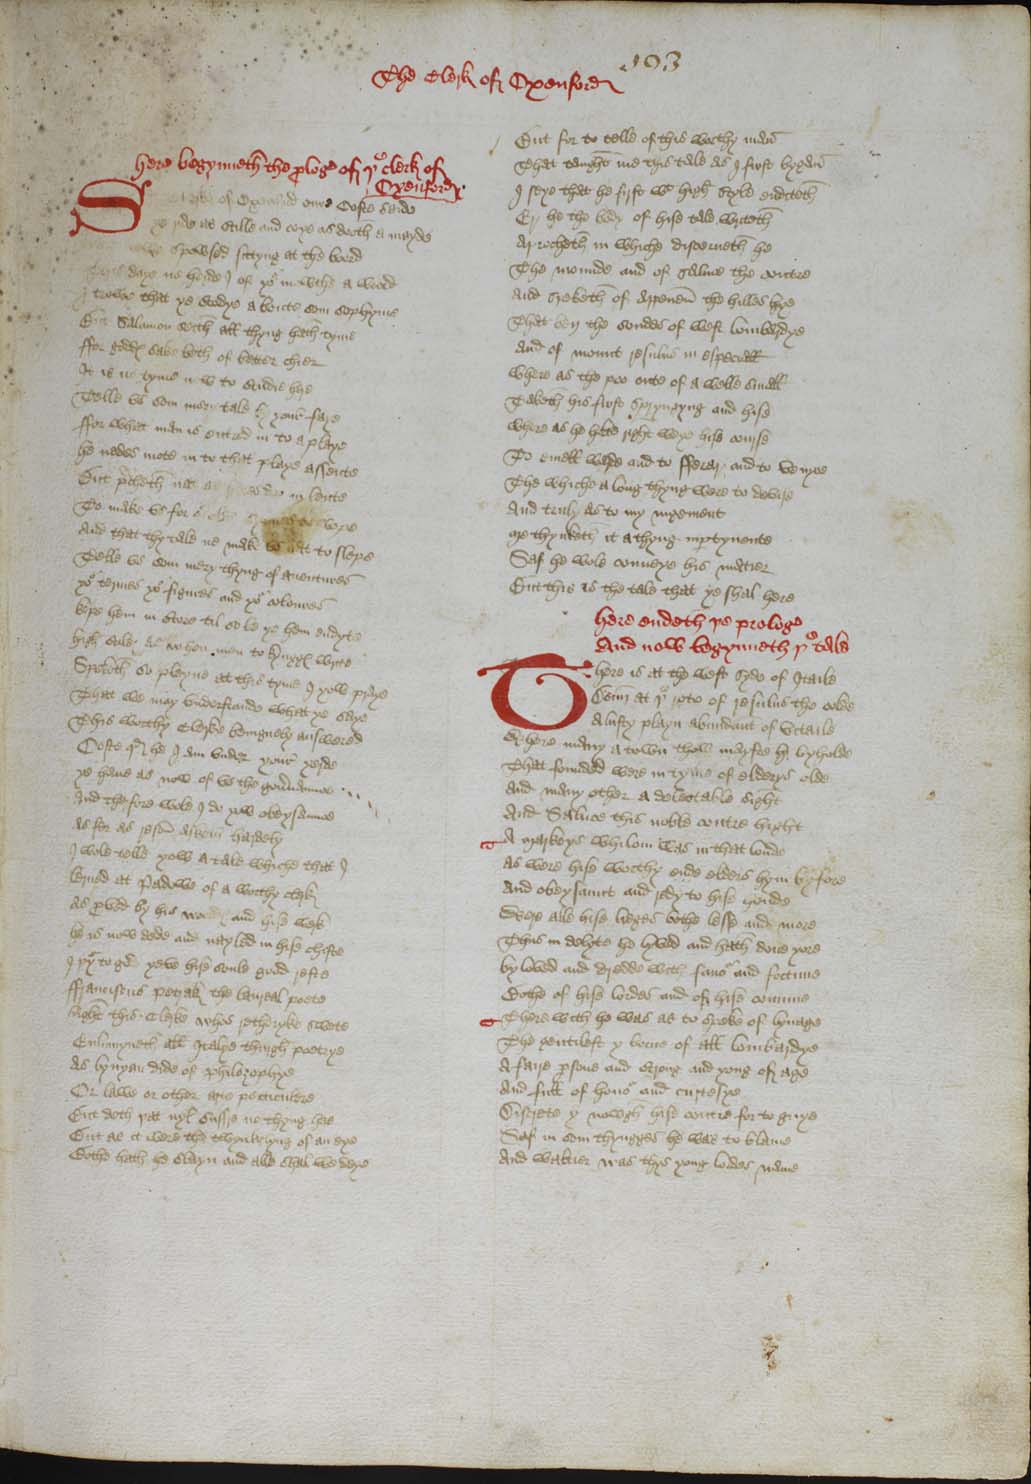 The Clerk of Oxenford
103
here begynneth the prologe of þe clerk of
Oxenford
S clerk of Oxenford oure Oste saide
ye ride as stille and coye as doth a mayde
spowsed sittyng at the bord
This daye ne herde I of yor mowthe a word
I trowe that ye stodye a boute som sophyme
But Salamon seith all thyng hath tyme
ffor goddes sake beth of better chier
It is no tyme now to studie hye
Telle vs som mery tale by your faye
ffor what man is entred in to a playe
he nedes mote in to that playe assente
But precheth nat as freres don in lente
To make vs for oure wepe
And that thy tale ne make vs nat to slepe
Telle vs som mery thyng of auentures
yor termes yor figures and yor coloures
kepe hem in store til so be ye hem endyte
high stile as when men to kyngges write
Speketh so pleyne at this tyme I yow praye
That we may vnderstande what ye saye
This worthy Clerke benignely answered
Oste quod he I am vnder your yerde
ye haue as now of vs the gouernaunce
And therfore wole I do yow obeysaunce
As fer as reson asketh hardely
I wole telle yow a tale whiche that I
lerned at Padowe of a worthy clerk
As proved by his wordes and his werk
he is now dede and nayled in his chiste
I pray to god yeve his soule good reste
ffraunceys Petrak the laureal poete
hight this Clerke whos rethoryke swete
Enlumyneth all Italye thurgh poetrye
As lynyan dide of philozophye
Or lawe or other art perticulere
But deth þat nyl suffre no thyng here
But as it were the twynkelyng of an eye
Bothe hath he slayn and alle shal we deye
But for to telle of this worthy man
That taught me this tale as I first bygan
I seye that he first with high style enditeth
Er he the body of his tale writeth
A procheth in whiche discryueth he
The mounde and of Saluce the contre
And speketh of Appenyn the hilles hye
That ben the boundes of west lombardye
And of mount vesulus in especiall
where as the poo oute of a welle small
Taketh his first spryngyng and his
where as he hette right weye his course
To emell warde and to fferar and to Venyce
The whiche a long thyng were to devise
And truly as to my iugement
me thynketh it a thyng inpertynente
Saf he wole conueye his matier
But this is the tale that ye shal here
here endeth þe prologe
And now begynneth þe tale
There is at the west syde of Itaile
Doun at þe rote of vesulus the colde
A lusty playn abundant of vitaile
where many a town thow mayste byholde
That founded were in tyme of elderys olde
And many other a delectable sight
And Saluce this noble contre hight
A markeys whilom was in that londe
As were his worthy ende elders hym byfore
And obeysaunt and redy to his honde
were alle his lieges bothe lesse and more
Thus in delyte he lyved and hath done yore
by loved and dredde with fauor and fortune
Bothe of his lordes and of his comune
Therewith he was as to speke of lynage
The gentilest y borne of all lombardye
A faire persone and strong and yong of age
And full of honor and curtesye
Discrete y nowgh his contre for to guye
Saf in som thyngges he was to blame
And walter was thys yong lordes name